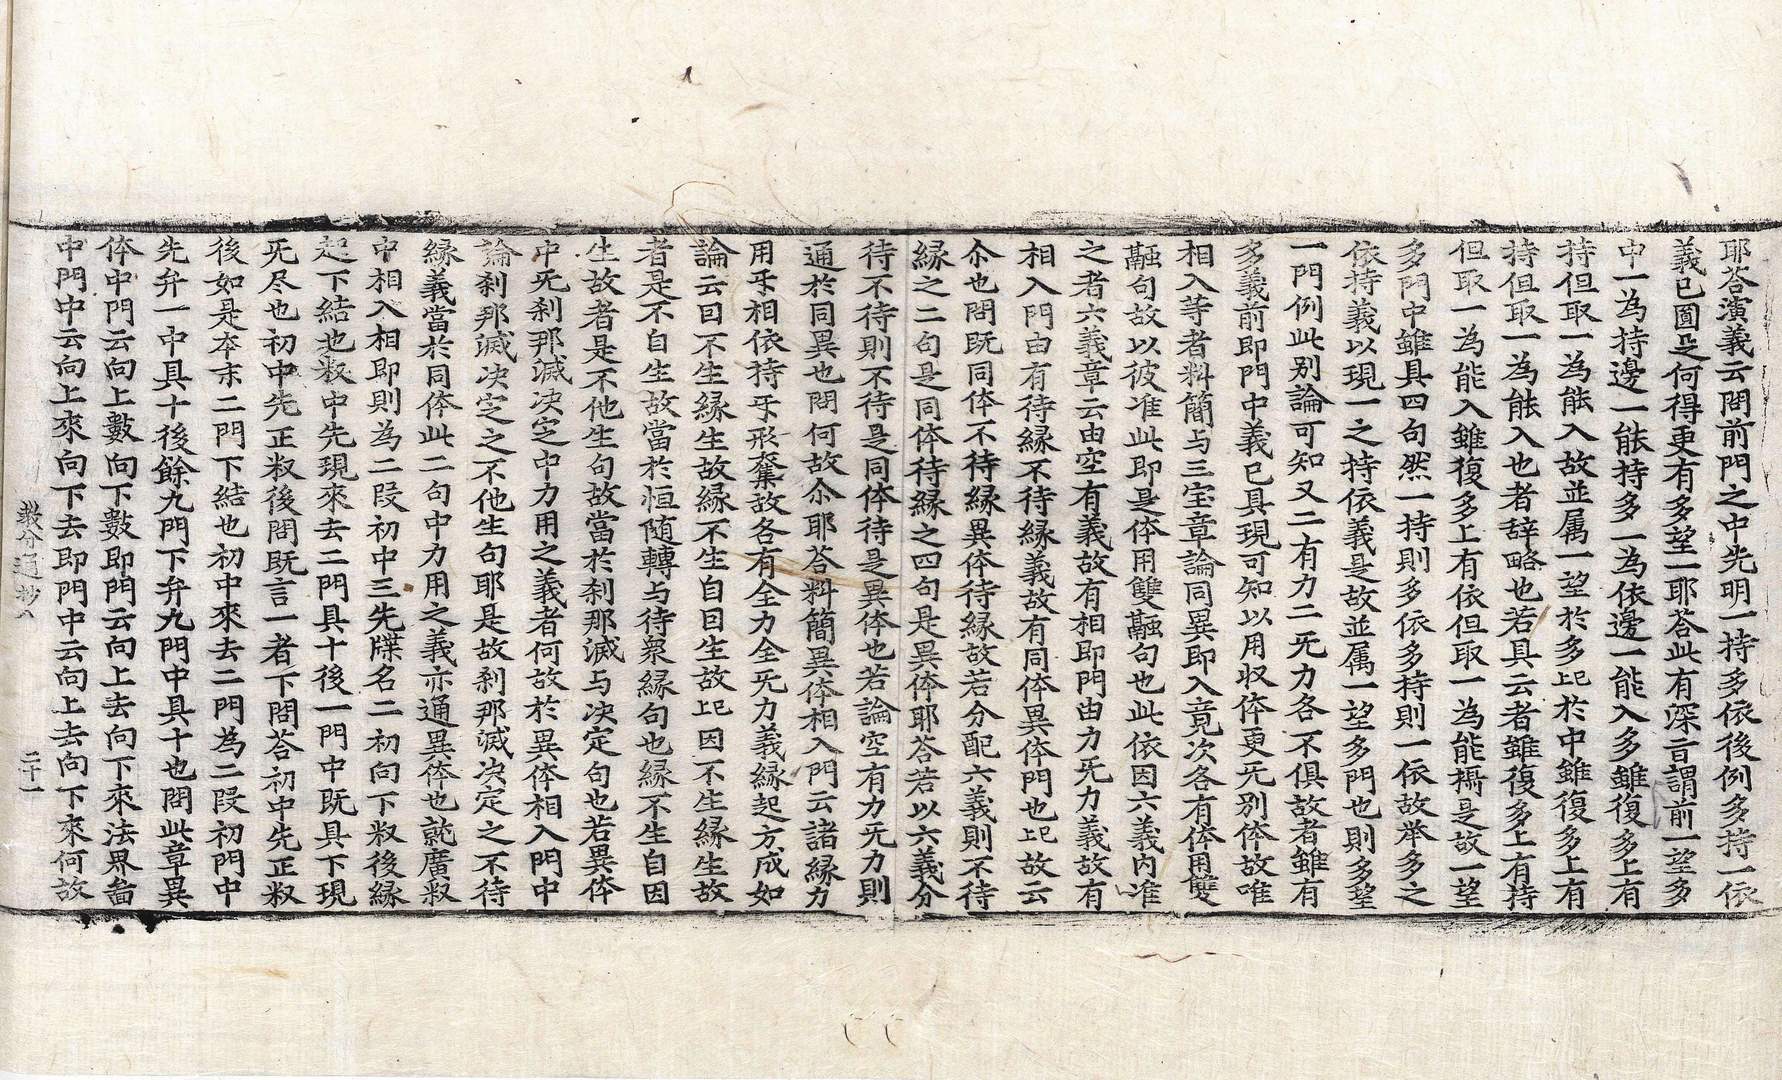 耶荅演義云問前門之中先明一持多依後例多持一依
義已圓足何得更有多望一耶荅此有深旨謂前一望多
中一為持邊一能持多一為依邊一能入多雖復多上有
持但取一為能入故並属一望於多𠯁於中雖復多上有
持但取一為能入也者辞略也若具云者雖復多上有持
但取一為能入雖復多上有依但取一為能攝是故一望
多門中雖具四句然一持則多依多持則一依故举多之
依持義以現一之持依義是故並属一望多門也則多望
一門例此别論可知又二有力二旡力各不俱故者雖有
多義前即門中義已具現可知以用収体更旡别体故唯
相入等者料簡与三宝章論同異即入竟次各有体用雙
融句故以彼准此即是体用雙融句也此依因六義内准
之者六義章云由空有義故有相即門由力旡力義故有
相入門由有待縁不待縁義故有同体異体門也𠯁故云
尒也問既同体不待縁異体待縁故若分配六義則不待
縁之二句是同体待縁之四句是異体耶荅若以六義分
待不待則不待是同体待是異体也若論空有力旡力則
通於同異也問何故尒耶荅料簡異体相入門云諸縁力
用㸦相依持㸦形奪故各有全力全旡力義縁起方成如
論云因不生縁生故縁不生自因生故𠯁因不生縁生故
者是不自生故當於恒随轉与待衆縁句也縁不生自因
生故者是不他生句故當於刹那滅与决定句也若異体
中旡刹那滅决定中力用之義者何故於異体相入門中
論刹那滅决定之不他生句耶是故刹那滅决定之不待
縁義當於同体此二句中力用之義亦通異体也就廣叙
中相入相即則為二段初中三先牒名二初向下叙後縁
起下結也叙中先現來去二門具十後一門中既具下現
旡尽也初中先正叙後問既言一者下問荅初中先正叙
後如是本末二門下結也初中來去二門為二段初門中
先弁一中具十後餘九門下弁九門中具十也問此章異
体中門云向上數向下數即門云向上去向下來法界啚
中門中云向上來向下去即門中云向上去向下來何故
教分通抄八
二十一